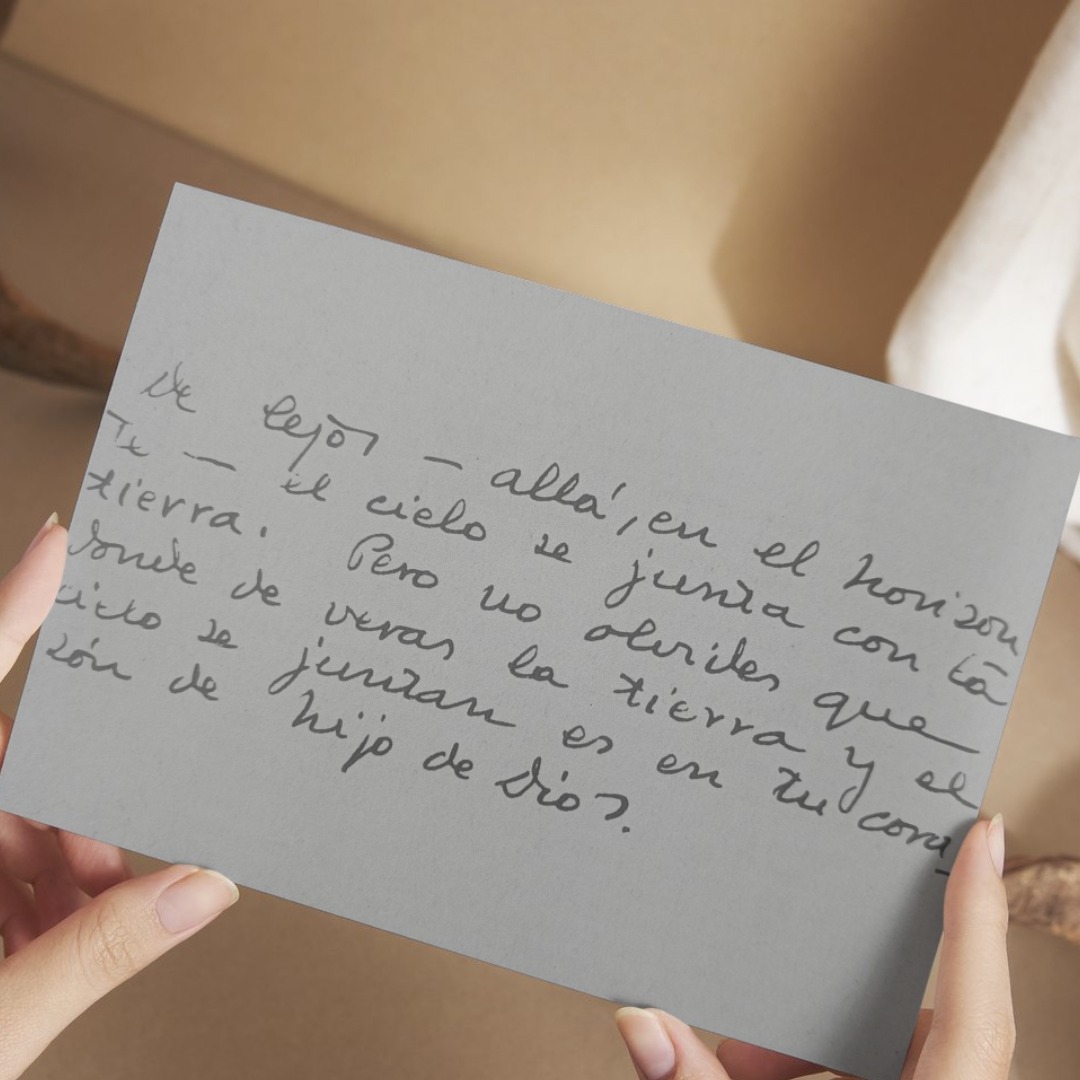 De lejos — allá, en el horizon
te — el cielo se junta con la
tierra. Pero no olvides que
donde de veras la tierra y el
cielo se juntan es en tu cora_
zón de hijo de Dios.